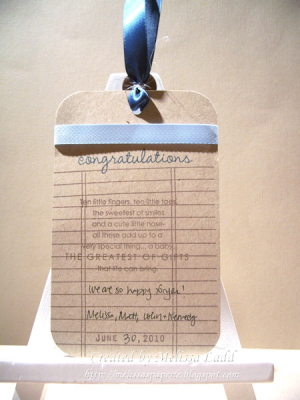 congratulations
Ten little fingers, ten little toes,
the sweetest of smiles
and a cute little nose-
all these add up to a
very special thing... a baby.
THE GREATEST OF GIFTS
that life can bring.
We are so happy
Melissa, Matt,
JUNE 30, 2010
Created by Melissa Ladd